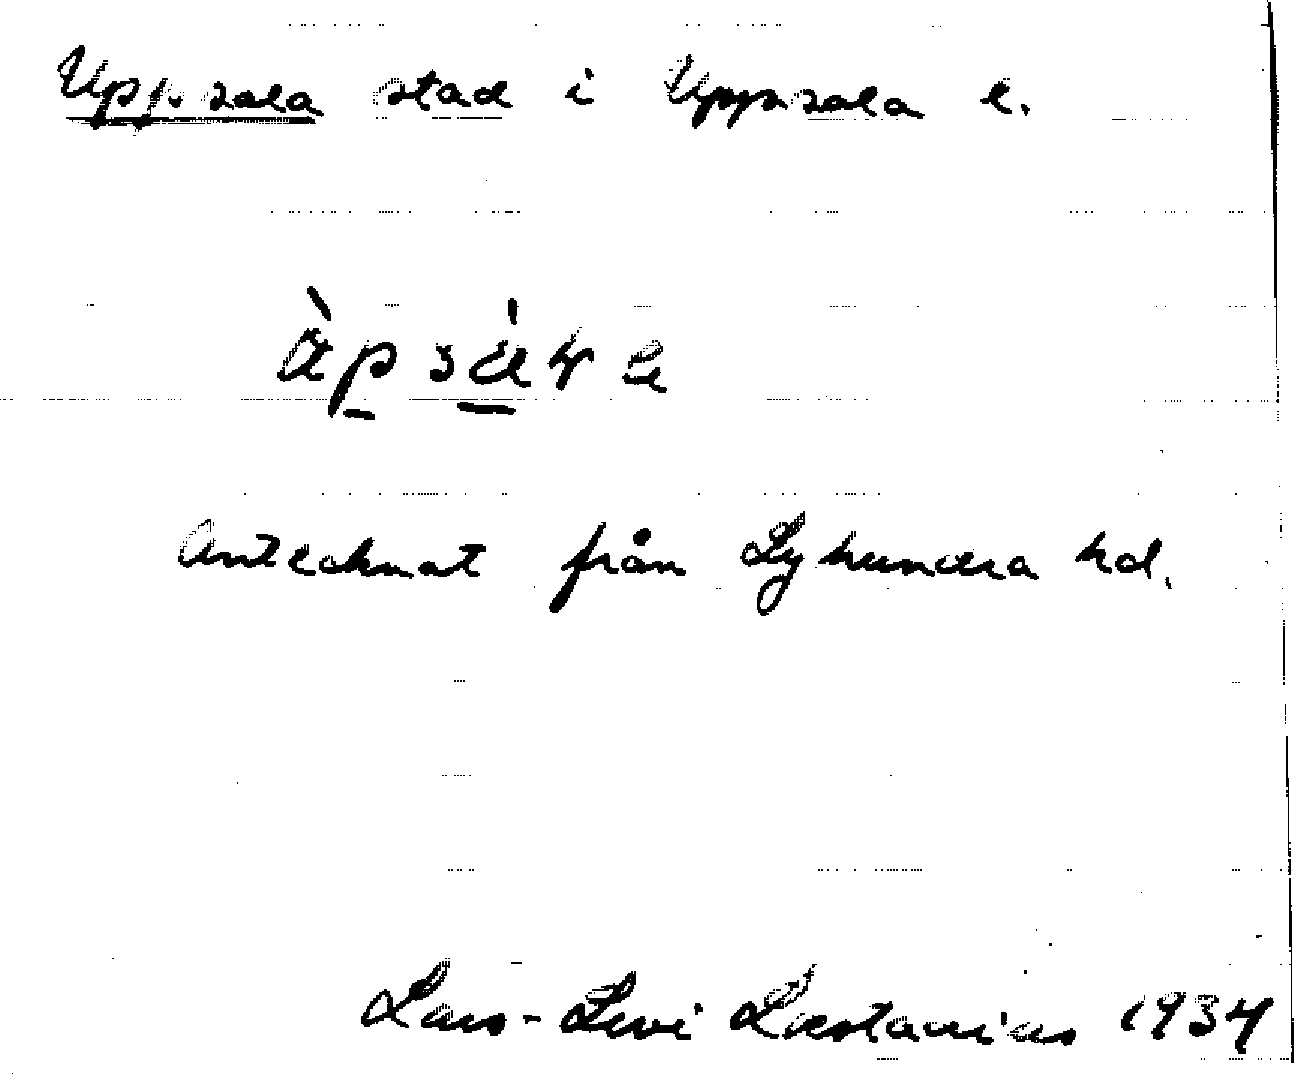 Uppsala stad i Uppsala l.
Antecknat från Lyhundra hd.
Lars-Levi Læstadius 1934